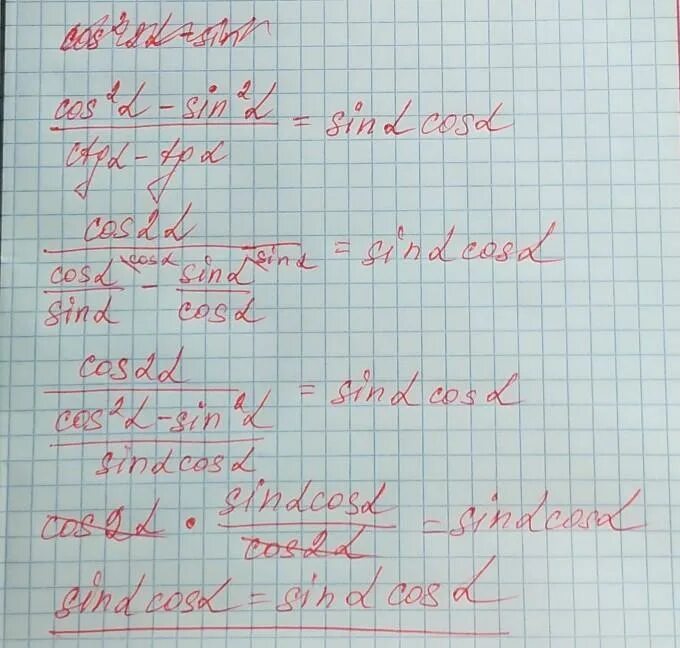 cos²α - sin²α / ctgα - tgα = sinα cosα
cos2α / cosα/sinα \cosα - sinα/cosα \sinα = sinα cosα
cos2α / cos²α - sin²α / sinα cosα = sinα cosα
cos2α · sinα cosα / cos2α = sinα cosα
sinα cosα = sinα cosα